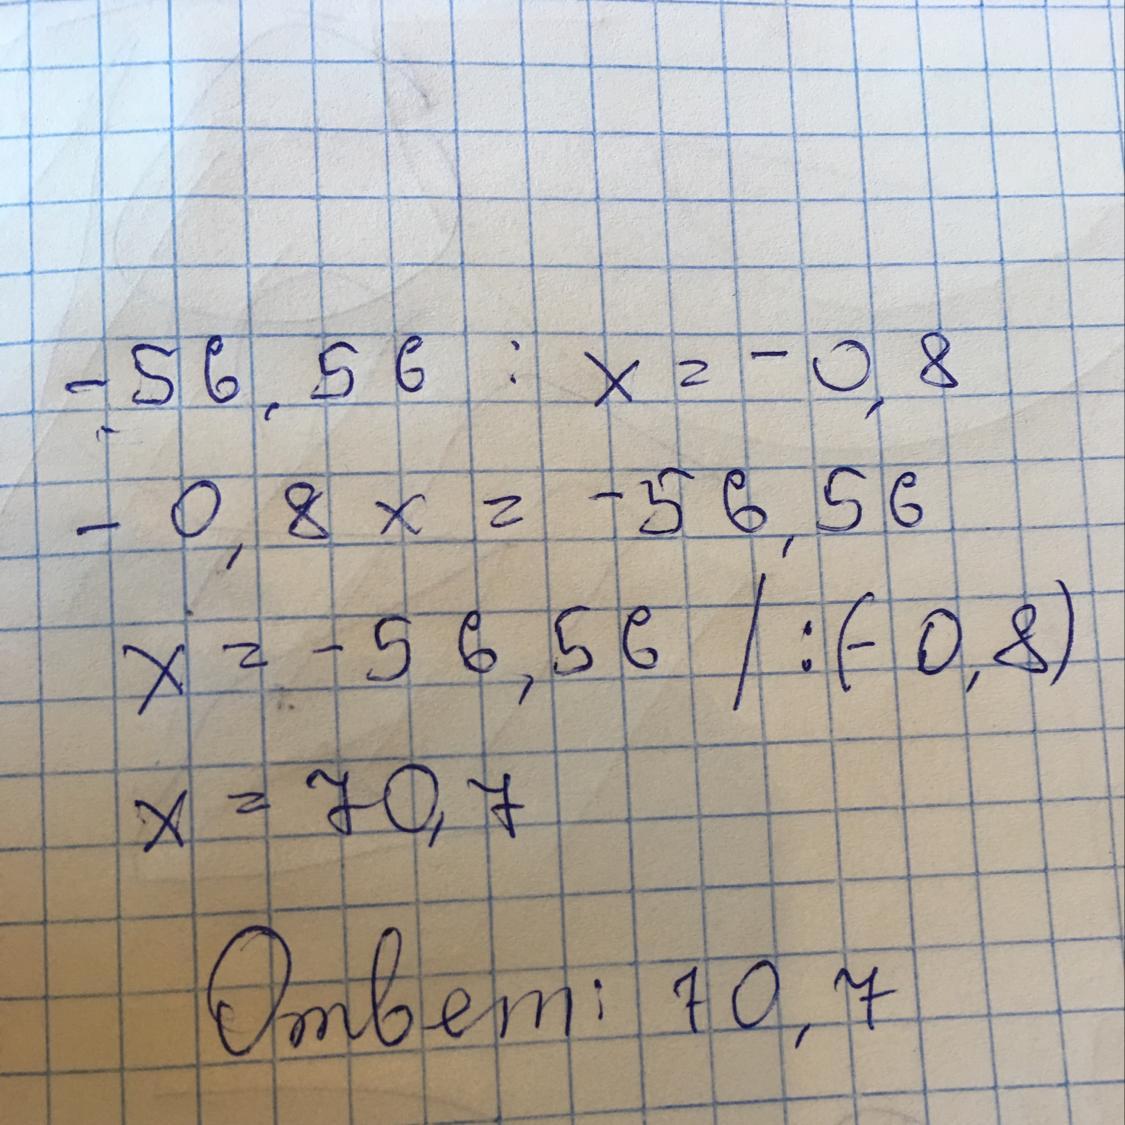 -56,56 : x = -0,8
-0,8x = -56,56
x = -56,56 / :(-0,8)
x = 70,7
Ответ: 70,7